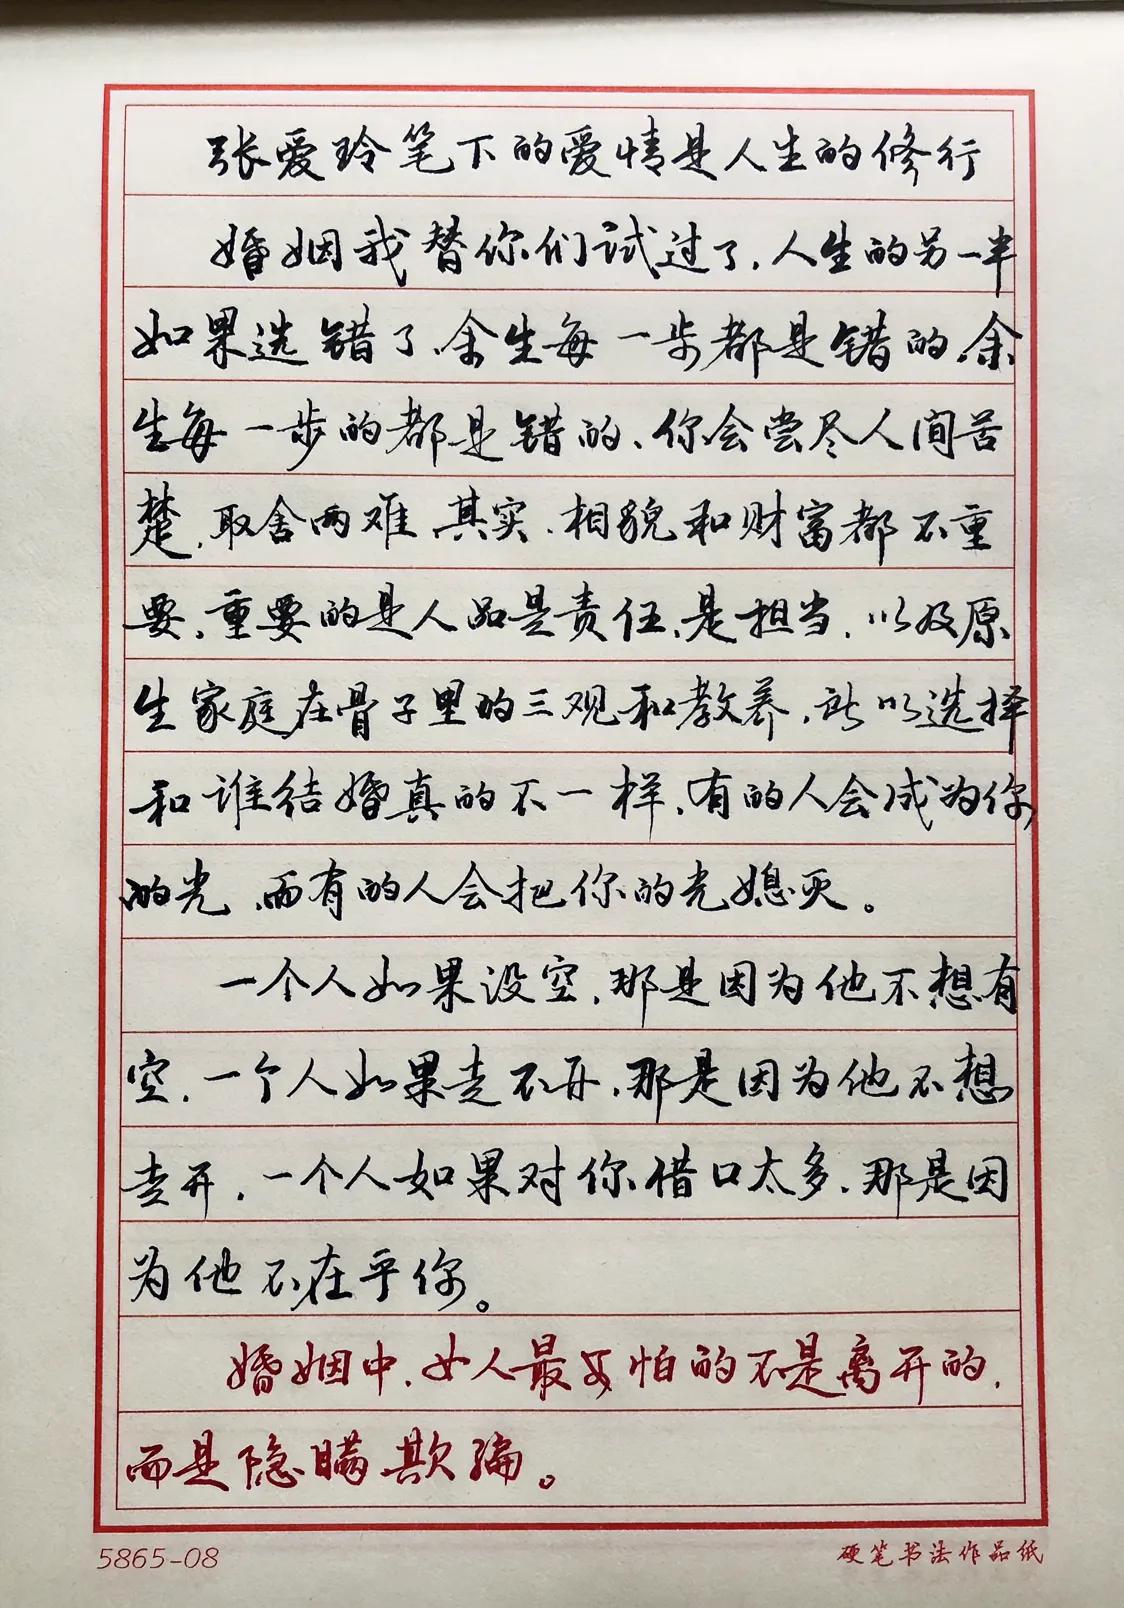 张爱玲笔下的爱情是人生的修行
婚姻我替你们试过了，人生的另一半
如果选错了、余生每一步都是错的、余
生每一步的都是错的、你会尝尽人间苦
楚，取舍两难、其实，相貌和财富都不重
要，重要的是人品是责任、是担当，以及原
生家庭在骨子里的三观和教养，所以选择
和谁结婚真的不一样，有的人会成为你
的光、而有的人会把你的光熄灭。
一个人如果没空，那是因为他不想有
空，一个人如果走不开，那是因为他不想
走开，一个人如果对你借口太多，那是因
为他不在乎你。
婚姻中，女人最怕的不是离开的，
而是隐瞒欺骗。
5865-08
硬笔书法作品纸